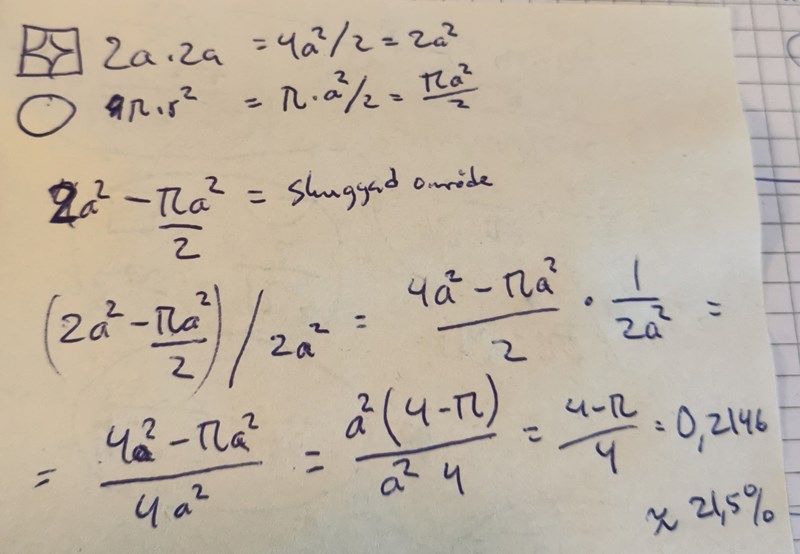 2a·2a = 4a²/2 = 2a²
π·r² = π·a²/2 = πa²/2
2a² - πa²/2 = Skuggad område
(2a² - πa²/2) / 2a² = (4a² - πa²)/2 · 1/2a² =
= (4a² - πa²)/4a² = a²(4-π)/a² 4 = (4-π)/4 = 0,2146
≈ 21,5%